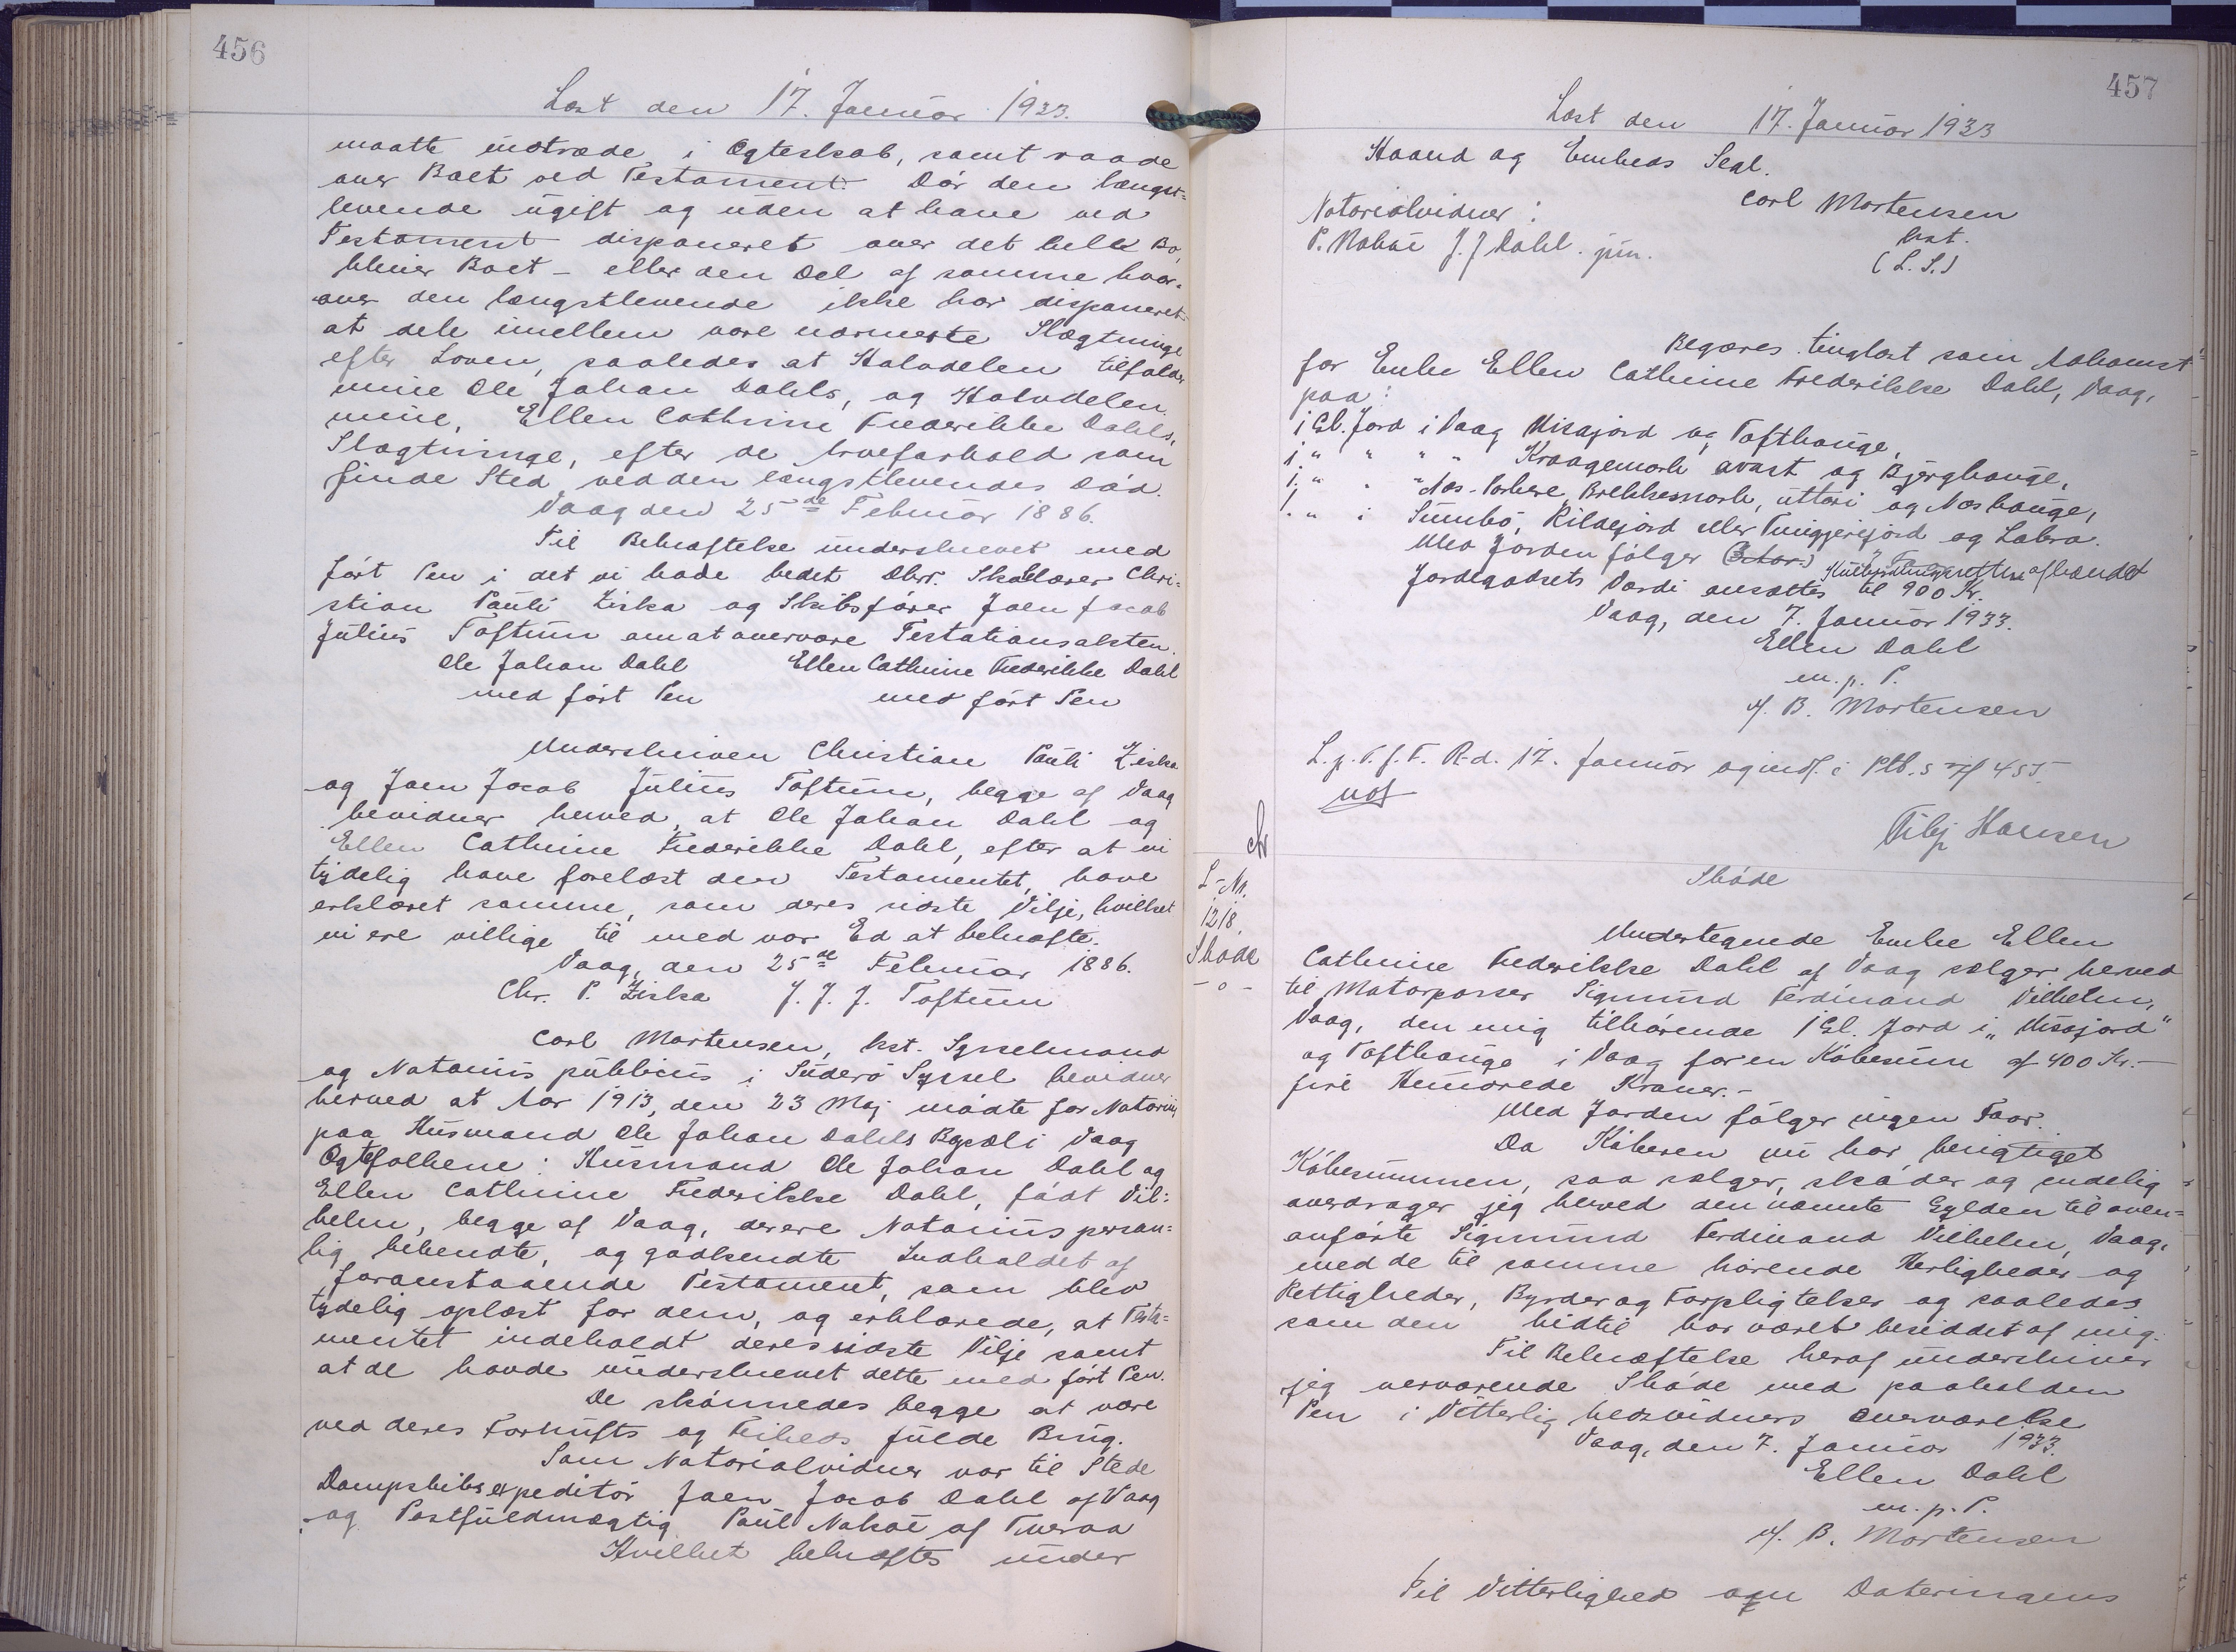 456
Læst den 17. Januar 1933.
maatte indtræde i Ægteskab, samt raade
over Boet ved Testament. Dör den længst=
levende ugift og uden at have ved
Testament disponeret over det hele Bo,
bliver Boet – eller den Del af samme hvor=
over den længstlevende ikke har disponeret–
at dele imellem vore nærmeste Slægtninge
efter Loven, saaledes at Halvdelen tilfalder
mine Ole Johan Dahls, og Halvdelen
mine, Ellen Cathrine Frederikke Dahls,
Slægtninge, efter de Arveforhold som
finde Sted ved den længstlevendes Död.
Vaag den 25de Februar 1886.
Til Bekræftelse underskrevet med
fört Pen i det vi have bedet Dhrr. Skolelærer Chri=
stian Pauli Ziska og Skibsförer Joen Jacob
Julius Toftum om at overvære Testationsakten.
Ole Johan Dahl Ellen Cathrine Frederikke Dahl
med fört Pen med fört Pen
Underskriven Christian Pauli Ziska
og Joen Jacob Julius Toftum, begge af Vaag
bevidner herved, at Ole Johan Dahl og
Ellen Cathrine Frederikke Dahl, efter at vi
tydelig have forelæst dem Testamentet, have
erklæret samme, som deres sidste Vilje, hvilket
vi ere villige til med vor Ed at bekræfte.
Vaag, den 25de Februar 1886.
Chr. P. Ziska J. J. J. Toftum
Carl Mortensen, kst. Sysselmand
og Notarius publicus i Suderö Syssel bevidner
herved at Aar 1913, den 23 Maj mödte for Notarius
paa Husmand Ole Johan Dahls Bopæl i Vaag
Ægtefolkene: Husmand Ole Johan Dahl og
Ellen Cathrine Frederikke Dahl, födt Vil=
helm, begge af Vaag, der ere Notarius person=
lig bekendte, og godkendte Indholdet af
foranstaaende Testament, som blev
tydelig oplæst for dem, og erklærede, at Testa=
mentet indeholdt deres sidste Vilje samt
at de havde underskrevet dette med fört Pen.
De skönnedes begge at være
ved deres Fornufts og Friheds fulde Brug.
Som Notarialvidner var til Stede
Dampskibsexpeditör Joen Jacob Dahl af Vaag
og Postfuldmægtig Paul Nolsöe af Tveraa
Hvilket bekræftes under
457
Læst den 17. Januar 1933
Haand og Embeds Segl.
Carl Mortensen
Notarialvidner:
kst.
P. Nolsöe J. J Dahl. jun.
(L. S.)
Begæres tinglæst som Adkomst
for Enke Ellen Cathrine Frederikke Dahl, Vaag,
paa:
1 Gl. Jord i Vaag Misajord og Tofthauge,
1. " " " " Kraagemork avast og Bjerghauge,
1. " " " Næs-Porkere, Brekkesmork, uttari og Næshauge,
1 " i Sumbö, Kildejord eller Tviggerijord og Labra.
Med Jorden fölger
Jordegodsets Værdi ansættes til 900 Kr.
Vaag, den 7. Januar 1933.
Ellen Dahl
m. p. P.
M. B. Mortensen
L. p. T. f. F. R. d. 17. Januar og indf. i Ptb. S 455.
Hansen
Sköde
L-Nr.
1218.
Sköde
– o –
Undertegnede Enke Ellen
Cathrine Frederikke Dahl af Vaag sælger herved
til Motorpasser Sigmund Ferdinand Vilhelm,
Vaag, den mig tilhörende 1 Gl. Jord i „Misajord"
og Tofthauge i Vaag for en Köbesum af 400 Kr.–
fire Hundrede Kroner.–
Med Jorden fölger ingen Faar.
Da Köberen nu har berigtiget
Köbesummen, saa sælger, sköder og endelig
overdrager jeg herved den nævnte Gylden til oven=
anförte Sigmund Ferdinand Vilhelm, Vaag,
med de til samme hörende Herligheder og
Rettigheder, Byrder og Forpligtelser og saaledes
som den hidtil har været besiddet af mig.
Til Bekræftelse heraf underskriver
jeg nærværende Sköde med paaholden
Pen i Vitterlighedsvidners Overværelse
Vaag, den 7. Januar 1933.
Ellen Dahl
m. p. P.
M. B. Mortensen
Til Vitterlighed om Dateringens